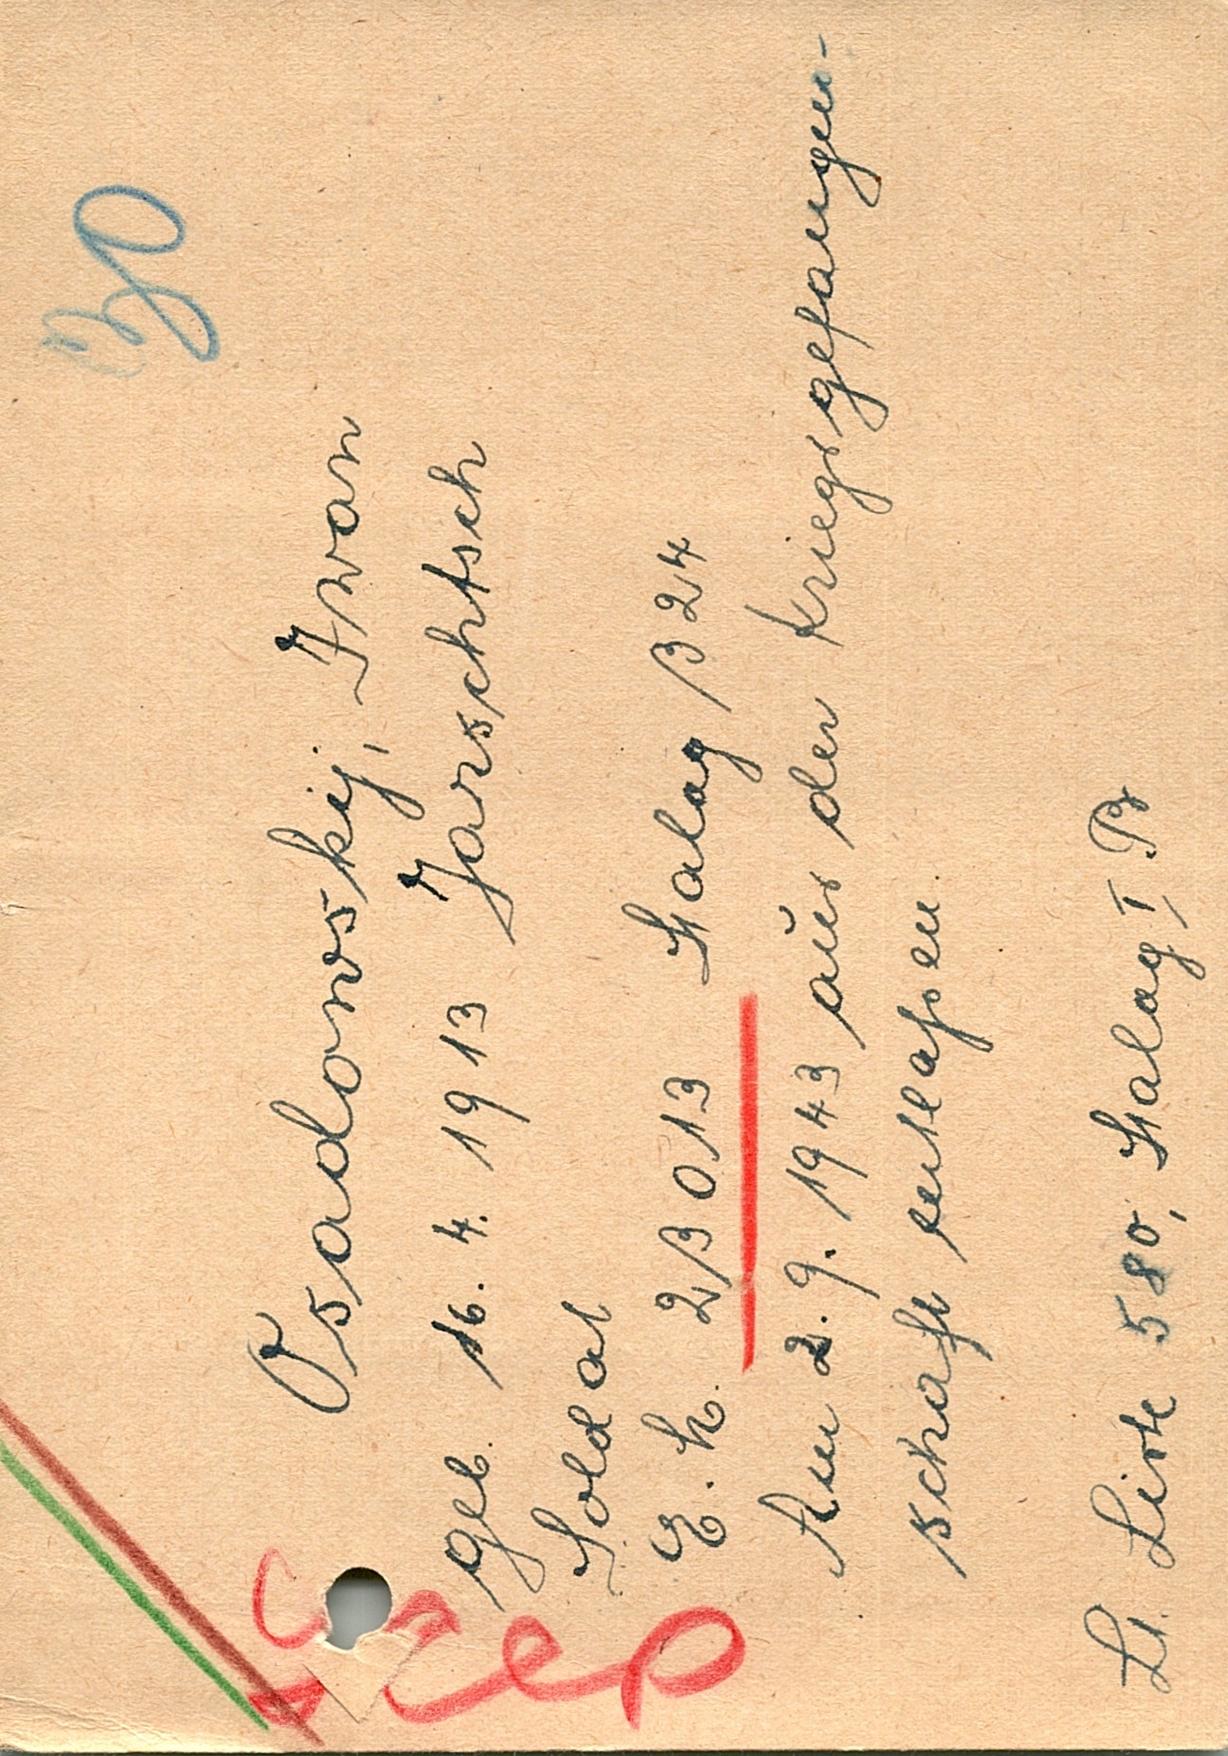 Osadowskij, Iwan
geb. 16. 4. 1913 Jarschtsch
Soldat
E. K. 2B 013 Stalag B 24
Am 2. 9. 1943 aus der Kriegsgefangen-
schaft entlassen.
Lt. Liste 580, Stalag I B